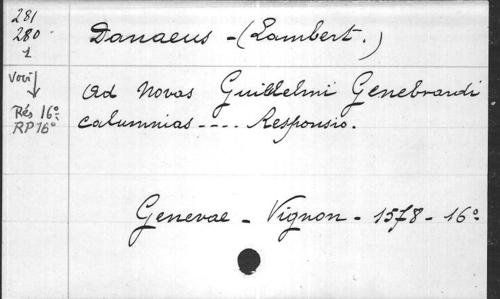 281
280
1
Danaeus - (Lambert.)
Voir
↓
Rés 16º
RP 16º
Ad Novas Guillelmi Genebrardi
calumnias ---- Responsio.
Genevae - Vignon - 1578 - 16º